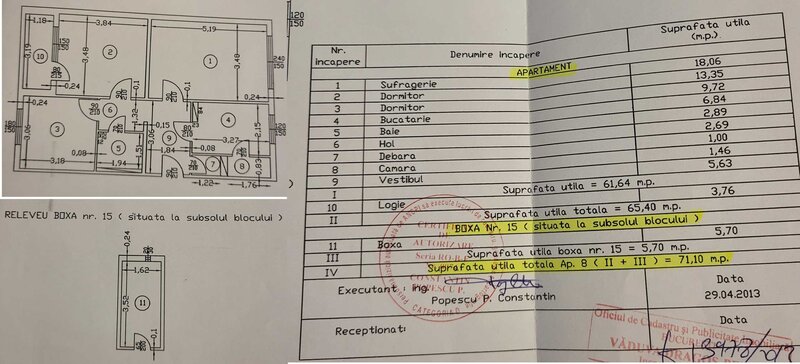 1,18
3,84
5,19
3,19
10
2
3,48
1
3,48
0,24
0,24
6
1,32
0,15
3,06
4
2,15
3,06
3
9
3,27
5
1,51
0,08
1,94
0,08
7
8
0,83
3,18
1,22
1,76
RELEVEU BOXA nr. 15 ( situata la subsolul blocului )
0,24
1,62
3,52
11
0,1
120
150
Nr. incapere
Denumire incapere
Suprafata utila (m.p.)
APARTAMENT
1 Sufragerie 18,06
2 Dormitor 13,35
3 Dormitor 9,72
4 Bucatarie 6,84
5 Baie 2,89
6 Hol 2,69
7 Debara 1,00
8 Camara 1,46
9 Vestibul 5,63
I Suprafata utila = 61,64 m.p.
10 Logie 3,76
II Suprafata utila totala = 65,40 m.p.
BOXA Nr. 15 ( situata la subsolul blocului )
11 Boxa 5,70
III Suprafata utila boxa nr. 15 = 5,70 m.p.
IV Suprafata utila totala Ap. 8 ( II + III ) = 71,10 m.p.
Executant : ing.
Popescu P. Constantin
Data
29.04.2013
Receptionat:
Data
AUTORIZARE
CONSTANTIN
POPESCU P.
CATEGORIA D
Oficiul de Cadastru și Publicitate